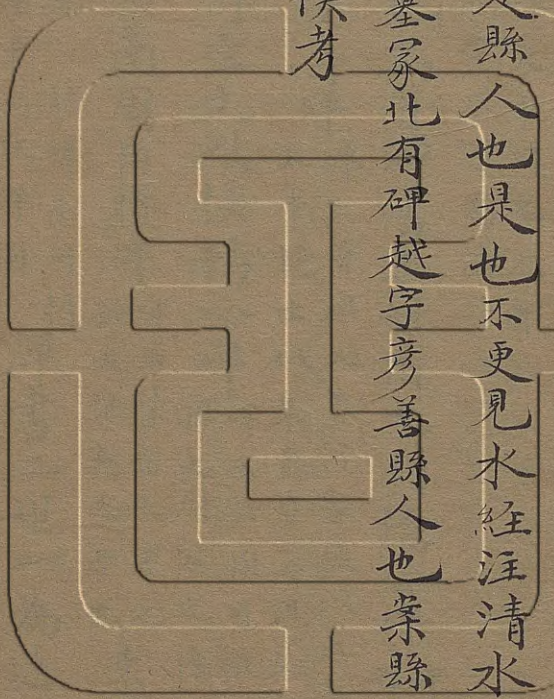 縣人也是也不更見水經注清水
墓冢北有碑越字彦善縣人也案縣
考